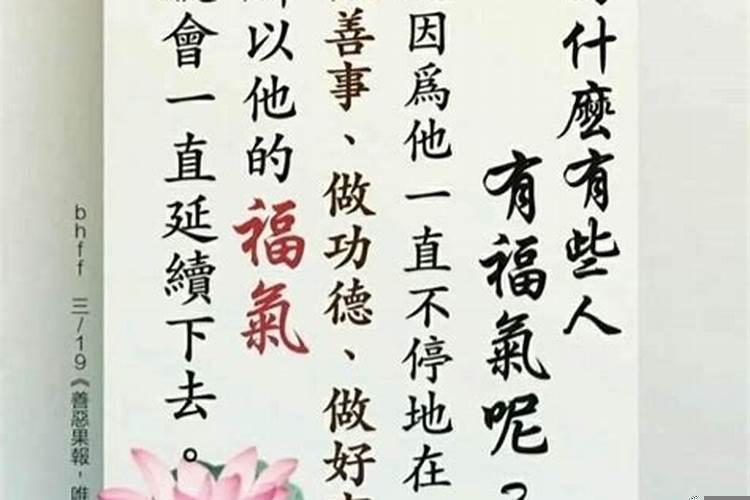 什麼有些人
有福氣呢？
因為他一直不停地在
善事、做功德、做好
所以他的福氣
會一直延續下去。
bhff 三/19《善惡果報，唯